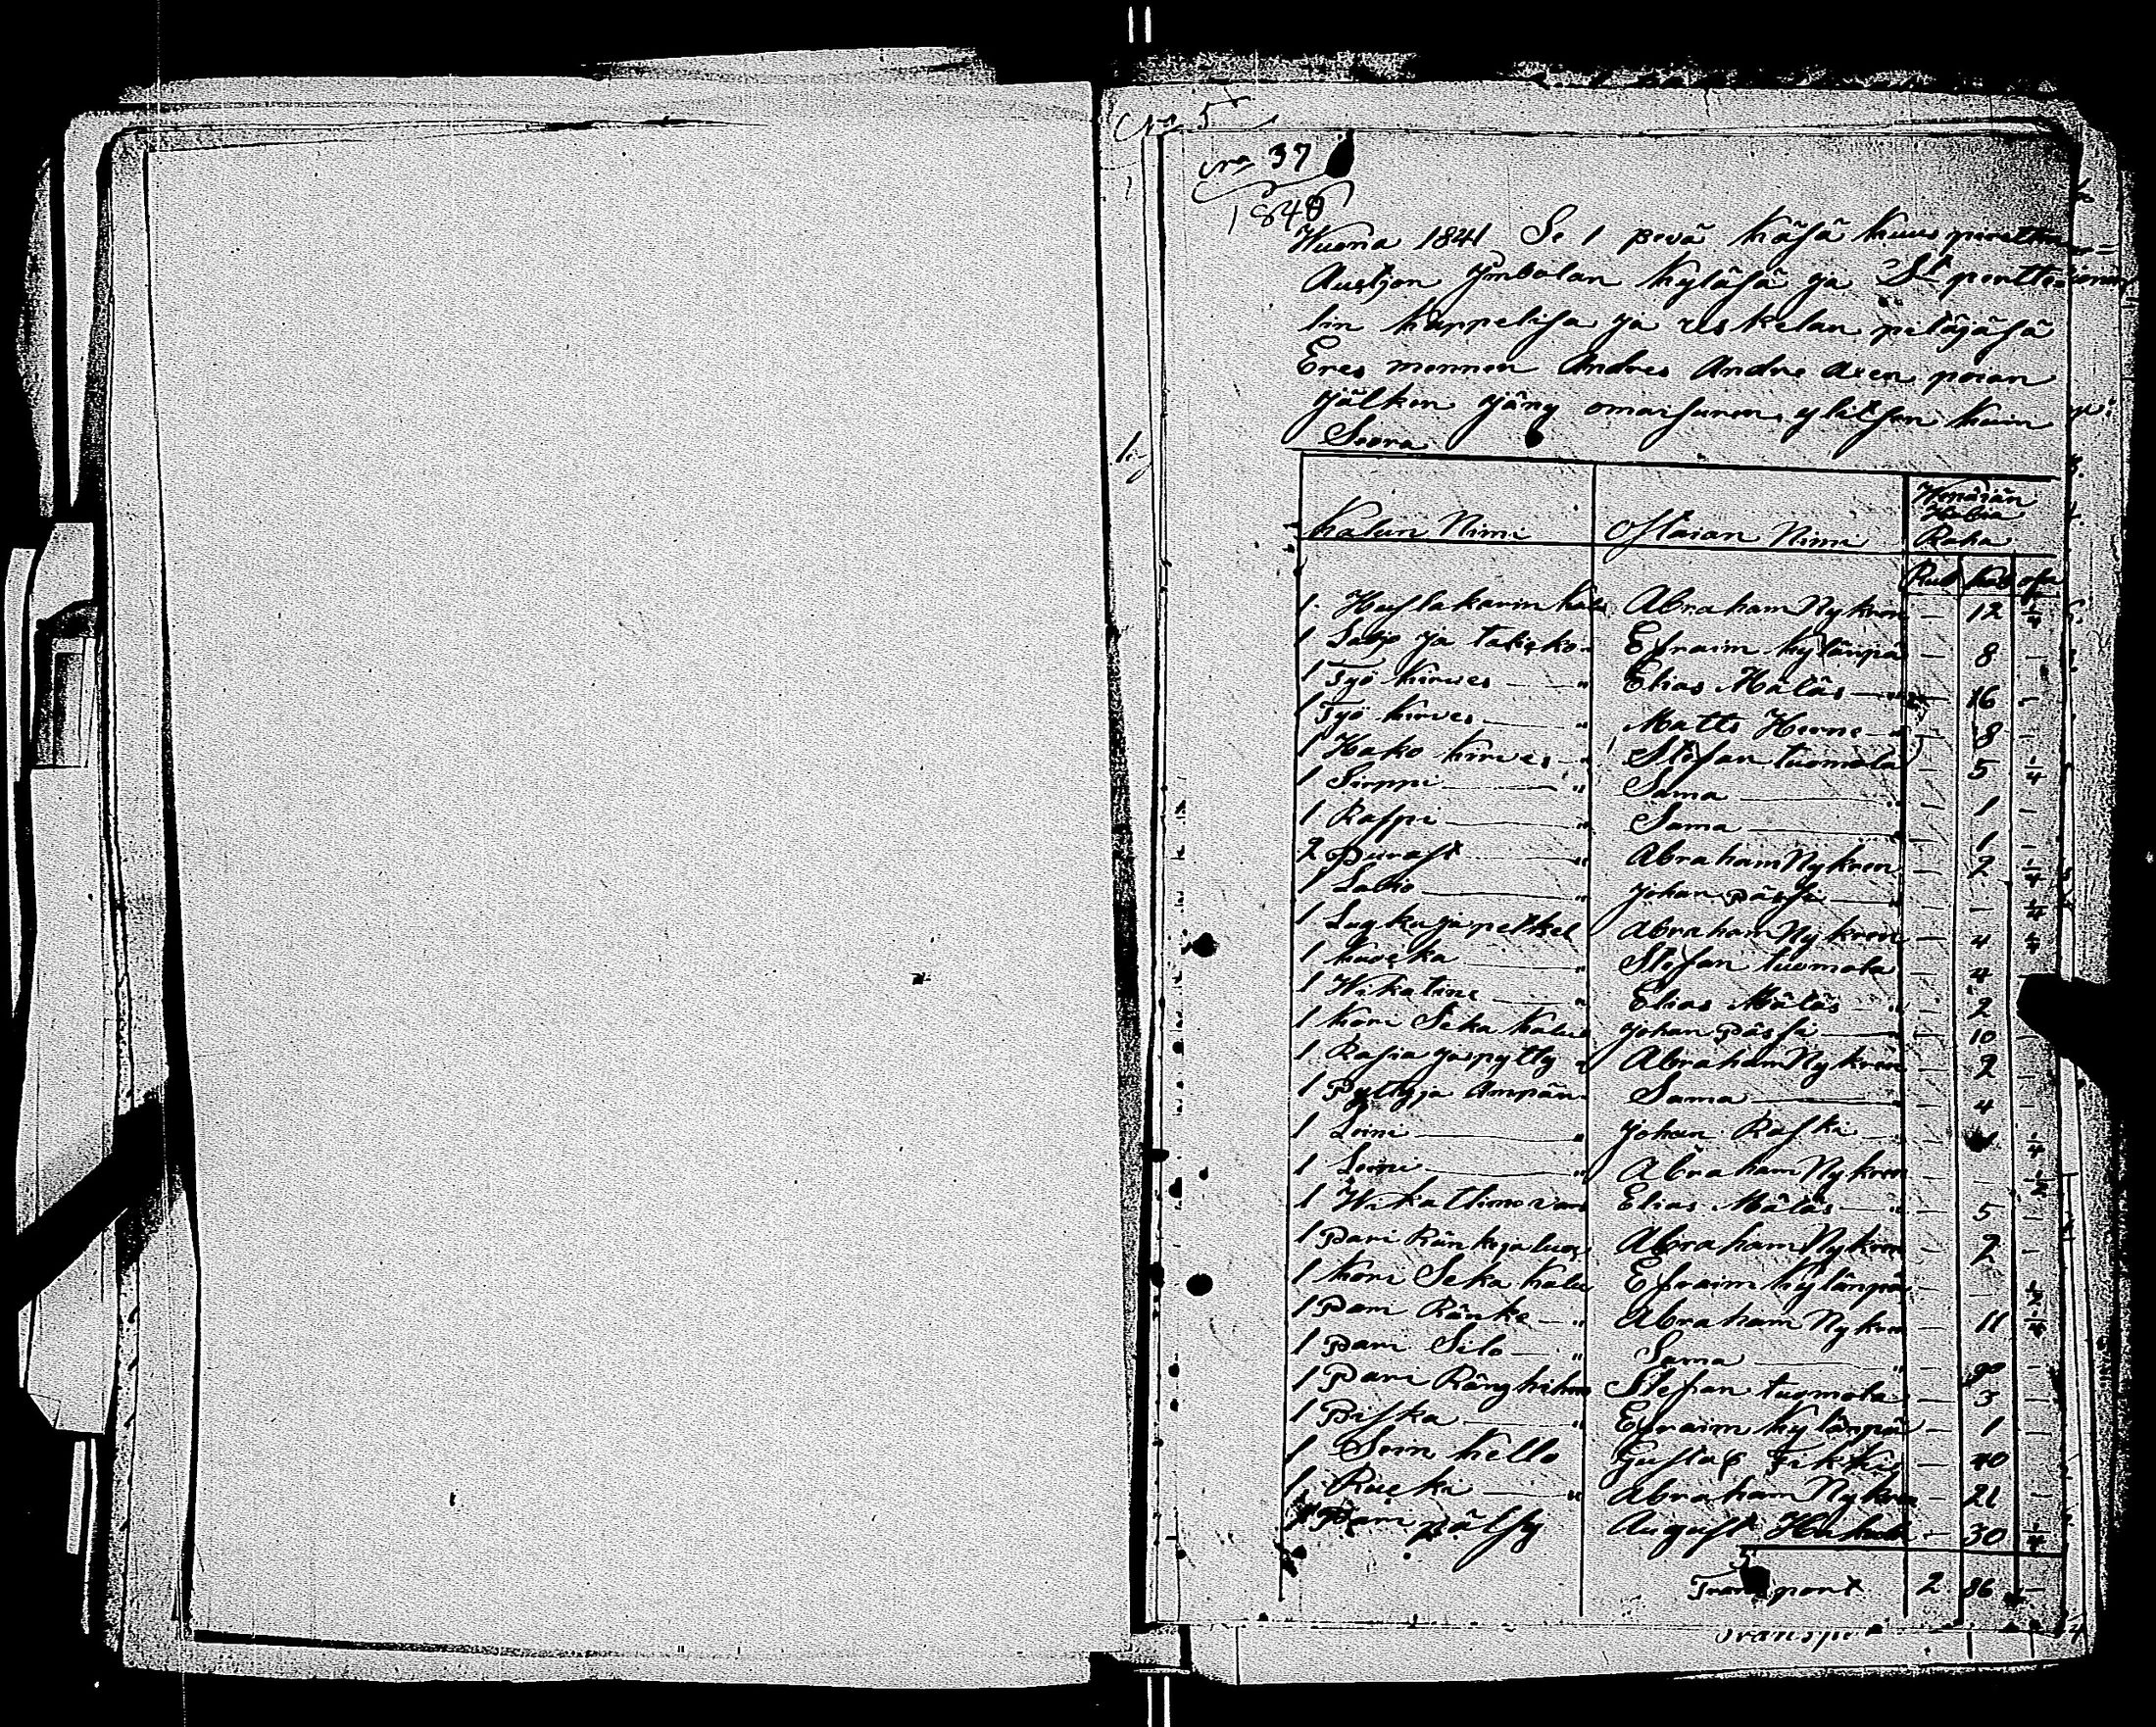 No 5
No 37
1840
Wuona 1841 Se 1 pevä käsä kuus pirettin
Austjon ymbolan kyläsä ja St pentte
lin kappelisa ja reskelan petäjäsä
Eres mennen Andres Andre asen poian
jälken jäny omaisuren ylitsen kuin
Seora
Kalun Nimi Ostaian Nimi Wenäiän Hobia Raha
Rub Kop osa
1 Huslakarin kalu Abraham Nykren — 12 1/4
1 Lapjo ja talicko Efraim kylänpä — 8 —
1 Työ kirwes — " Elias Mäläs — 16 —
1 Työ kirves — " Matts Herne — 8 —
1 Hako kirves — " Stefan tuomola — 5 1/4
1 Sirppi — " Sama — 1 —
1 Raspi — " Sama — 1 —
2 Purast — " Abraham Nykren — 2 1/4
1 Lasio — " Johan Pässi — — 1/4
1 Lugku ja petkel Abraham Nykren — 4 1/4
1 kuocka — " Stefan tuomola — 4 —
1 Wikatine — " Elias Mäläs — 2 —
1 kori Seka kalu Johan Pässi — 10 —
1 Rasia ja pytty Abraham Nykren — 2 —
1 Pytty ja Ampän Sama — 4 —
1 Leini — " Johan Raski — 1 1/4
1 Leini — " Abraham Nykren — — 1/2
1 Wikattimoran Elias Mäläs — 5 —
1 Pari Ränke ja luos Abraham Nykren — 2 —
1 kori Seka kalu Efraim kylänpä — — 1/2
1 Pari Ränke — " Abraham Nykren — 11 1/4
1 Pari Silo — " Sama — 90 —
1 Pari Räng hihna Stefan tuomola — 3 —
1 Piska — " Efraim kylänpä — 1 —
1 Sein kello Gustaf — 40
1 Rucki — " Abraham Nykren — 21 —
1 Pari pältsy August — 30 1/4
Transport 2 86 —
Transport